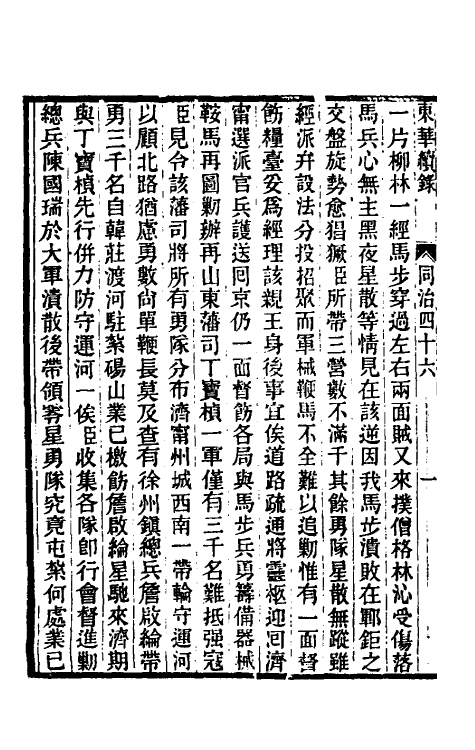 東華續錄　同治四十六　一
一片柳林一經馬步穿過左右兩面賊又來撲僧格林沁受傷落
馬兵心無主黑夜星散等情見在該逆因我馬步潰敗在鄆鉅之
交盤旋勢愈猖獗臣所帶三營數不滿千其餘勇隊星散無蹤雖
經派弁設法分投招聚而軍械鞭馬不全難以追勦惟有一面督
飭糧臺妥為經理該親王身後事宜俟道路疏通將靈柩迎囘濟
甯選派官兵護送囘京仍一面督飭各局與馬步兵勇籌備器械
鞍馬再圖勦辦再山東藩司丁寶楨一軍僅有三千名難抵强寇
臣見令該藩司將所有勇隊分布濟甯州城西南一帶輪守運河
以顧北路猶慮勇數尙單鞭長莫及查有徐州鎭總兵詹啟綸帶
勇三千名自韓莊渡河駐紮碭山業已檄飭詹啟綸星馳來濟期
與丁寶楨先行併力防守運河一俟臣收集各隊卽行會督進勦
總兵陳國瑞於大軍潰散後帶領零星勇隊究竟屯紮何處業已